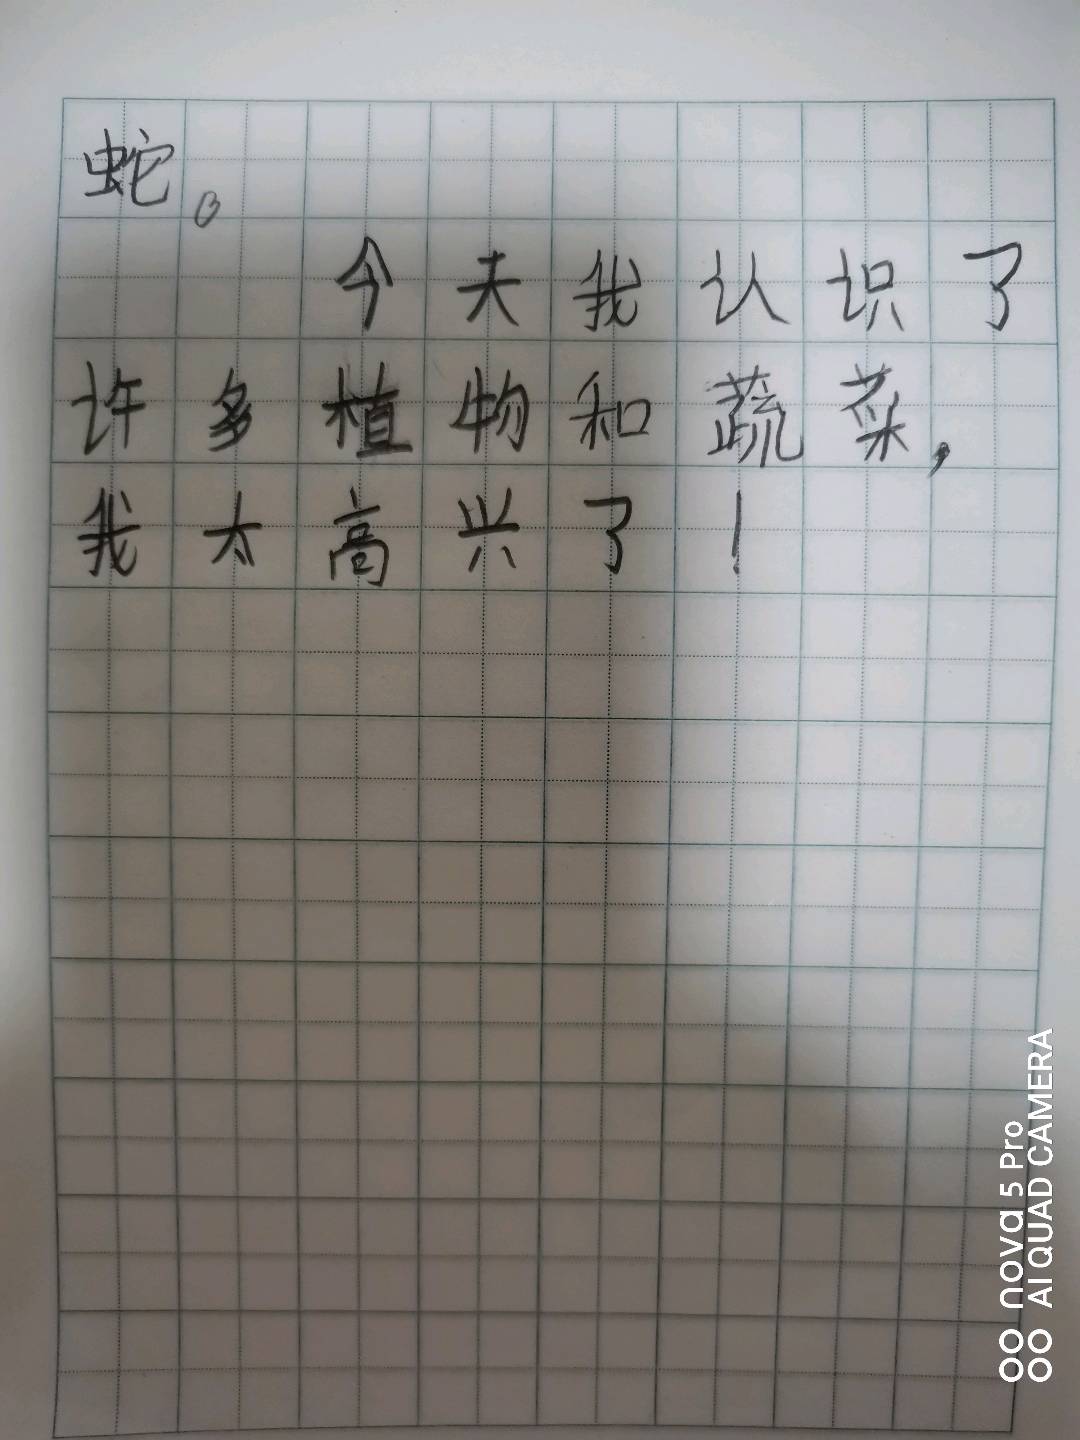 蛇。
今天我认识了
许多植物和蔬菜，
我太高兴了！
nova 5 Pro
AI QUAD CAMERA